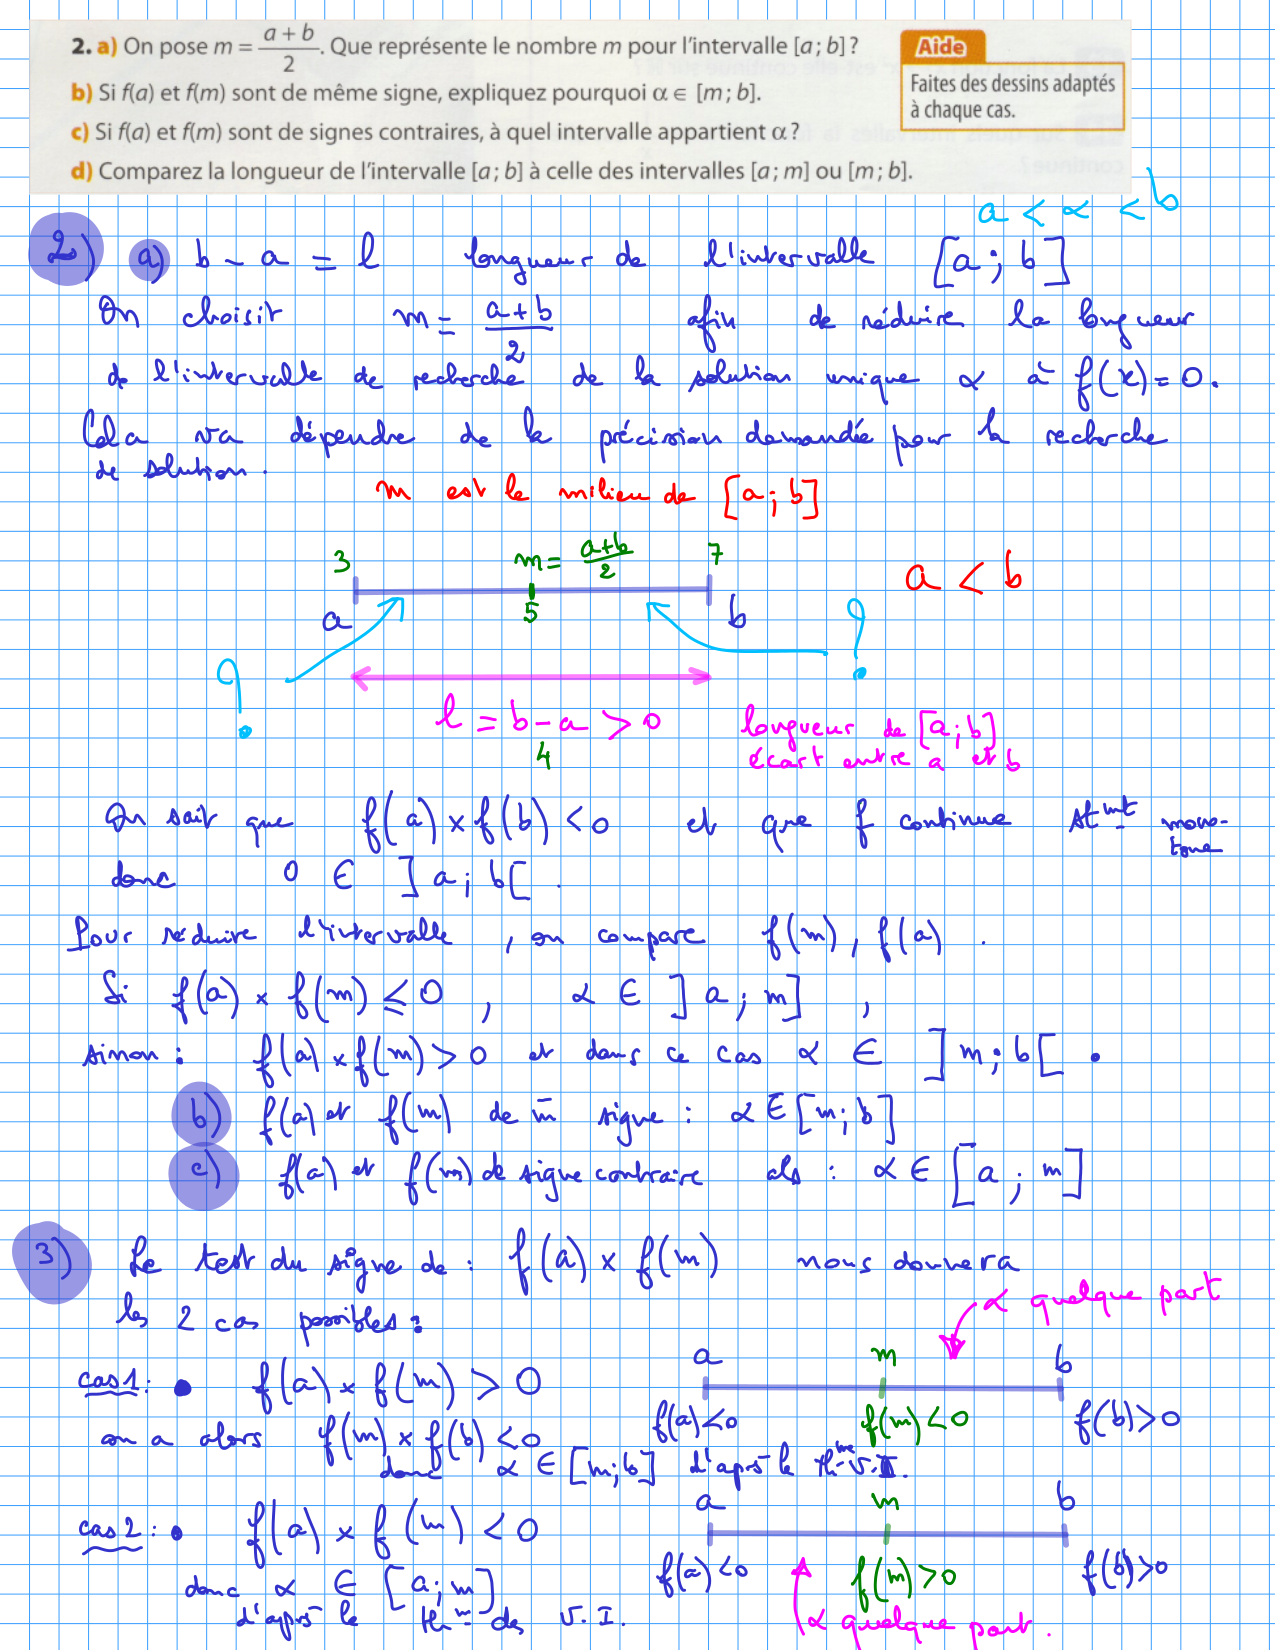 2. a) On pose m = (a + b)/2. Que représente le nombre m pour l'intervalle [a ; b] ?
b) Si f(a) et f(m) sont de même signe, expliquez pourquoi α ∈ [m ; b].
c) Si f(a) et f(m) sont de signes contraires, à quel intervalle appartient α ?
d) Comparez la longueur de l'intervalle [a ; b] à celle des intervalles [a ; m] ou [m ; b].
Aide
Faites des dessins adaptés
à chaque cas.
a < α < b
2) a) b - a = l longueur de l'intervalle [a ; b]
On choisit m = (a+b)/2 afin de réduire la longueur
de l'intervalle de recherche de la solution unique α à f(x) = 0.
Cela va dépendre de la précision demandée pour la recherche
de solution.
m est le milieu de [a ; b]
3 m = (a+b)/2 7
a < b
a 5 b
? ?
l = b - a > 0
4
longueur de [a ; b]
écart entre a et b
On sait que f(a) × f(b) < 0 et que f continue stmt mono-
tone
donc 0 ∈ ]a ; b[.
Pour réduire l'intervalle, on compare f(m), f(a).
Si f(a) × f(m) ≤ 0, α ∈ ]a ; m],
sinon : f(a) × f(m) > 0 et dans ce cas α ∈ ]m ; b[.
b) f(a) et f(m) de m̄ signe : α ∈ [m ; b]
c) f(a) et f(m) de signe contraire als : α ∈ [a ; m]
3) Le test du signe de : f(a) × f(m) nous donnera
les 2 cas possibles :
α quelque part
a m b
cas 1 : • f(a) × f(m) > 0
f(a) < 0 f(m) < 0 f(b) > 0
on a alors f(m) × f(b) < 0
donc α ∈ [m ; b] d'après le thme V.I.
a m b
cas 2 : • f(a) × f(m) < 0
f(a) < 0 f(m) > 0 f(b) > 0
donc α ∈ [a ; m]
d'après le thm des V.I.
α quelque part.